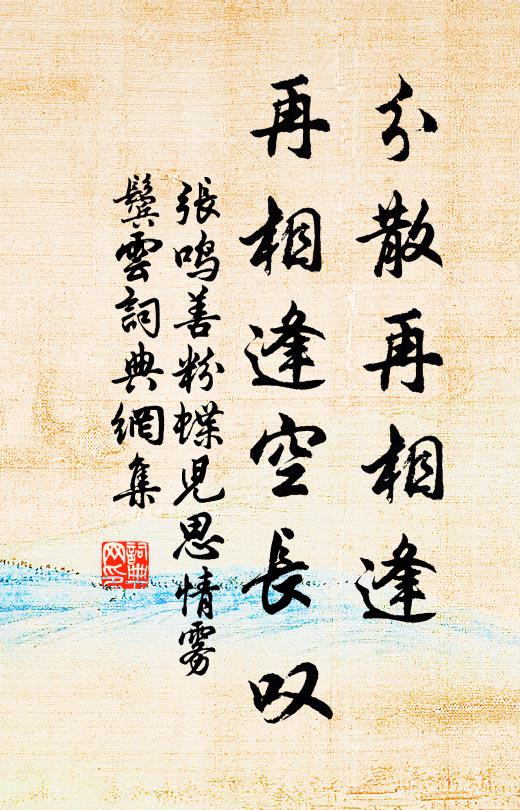 分散再相逢
再相逢空長叹
張鳴善粉蝶児思情雾
鬓雲詞典網集
詞典网印